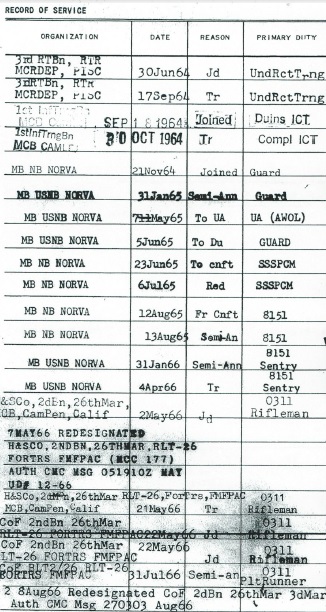 RECORD OF SERVICE
ORGANIZATION DATE REASON PRIMARY DUTY
3rd RTBn, RTR
MCRDEP, PISC 30Jun64 Jd UndRctTrng
3rdRTBn, RTR
MCRDEP, PISC 17Sep64 Tr UndRctTrng
1st InfTrngBn
MCB CAMLEJ SEP 18 1964 Joined DuIns ICT
1stInfTrngBn
MCB CAMLEJ 30 OCT 1964 Tr Compl ICT
MB NB NORVA 21Nov64 Joined Guard
MB USNB NORVA 31Jan65 Semi-Ann Guard
MB USNB NORVA May65 To UA UA (AWOL)
MB USNB NORVA 5Jun65 To Du GUARD
MB NB NORVA 23Jun65 To cnft SSSPCM
MB NB NORVA 6Jul65 Red SSSPCM
MB NB NORVA 12Aug65 Fr Cnft 8151
MB NB NORVA 13Aug65 Semi-An 8151
8151
MB USNB NORVA 31Jan66 Semi-Ann Sentry
8151
MB USNB NORVA 4Apr66 Tr Sentry
H&SCo, 2dBn, 26thMar, 0311
MCB, CamPen, Calif 2May66 Jd Rifleman
7MAY66 REDESIGNATED
H&SCO, 2NDBN, 26THMAR, RLT-26
FORTRS FMFPAC (MCC 177)
AUTH CMC MSG 051910Z MAY
UD# 12-66
H&SCo, 2dBn, 26thMar RLT-26, ForTrs, FMFPAC 0311
MCB, CamPen, Calif 21May66 Tr Rifleman
CoF 2ndBn 26thMar 0311
RLT-26 FORTRS FMFPAC 22May66 Jd Rifleman
CoF 2ndBn 26thMar 22May66 0311
RLT-26 FORTRS FMFPAC Jd Rifleman
CoF BLT2/26 RLT-26 0311
FORTRS FMFPAC 31Jul66 Semi-an PltRunner
2 8Aug66 Redesignated CoF 2dBn 26thMar 3dMar
Auth CMC Msg 270303 Aug66